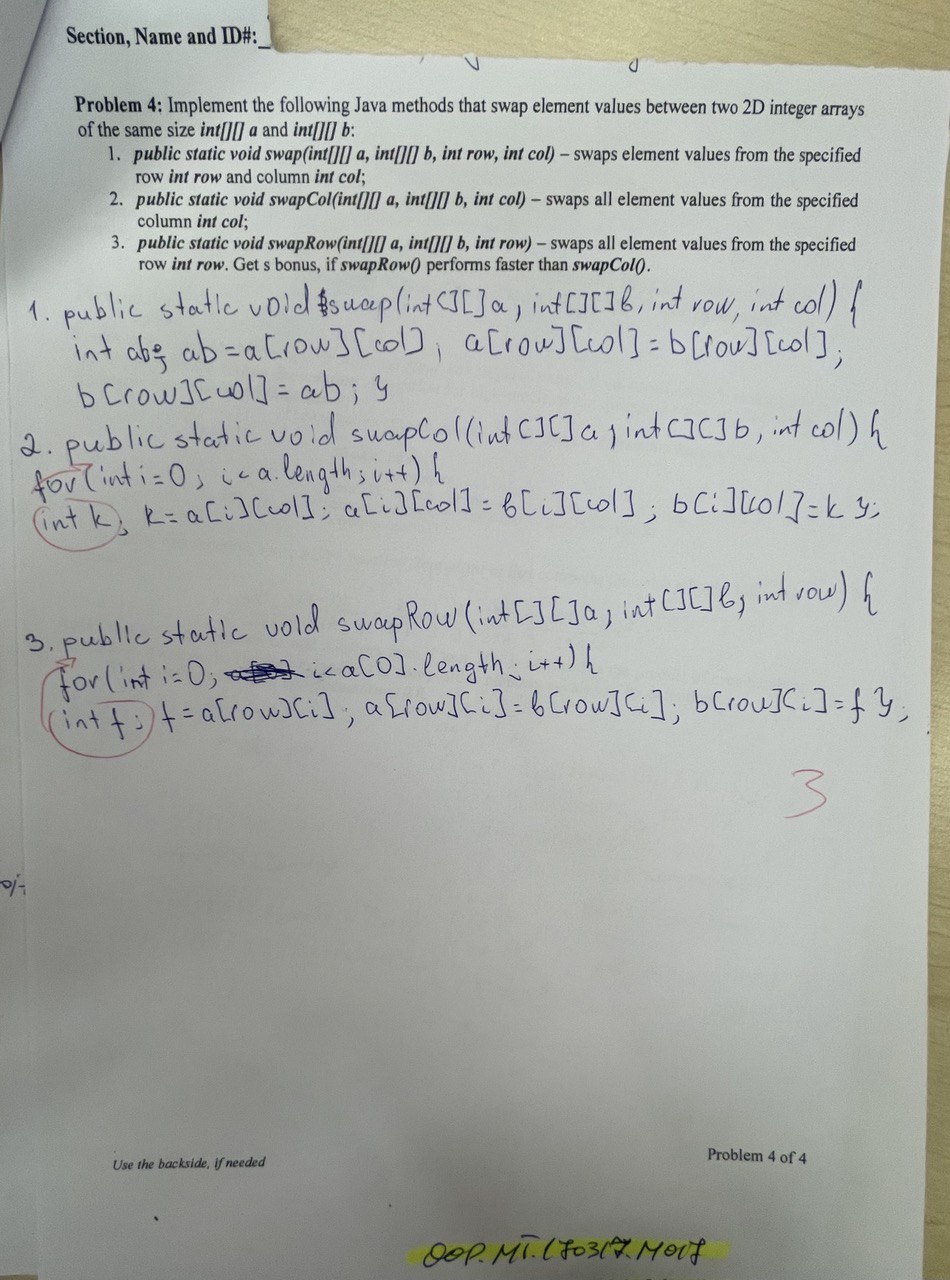 Section, Name and ID#:_
Problem 4: Implement the following Java methods that swap element values between two 2D integer arrays
of the same size int[][] a and int[][] b:
1. public static void swap(int[][] a, int[][] b, int row, int col) – swaps element values from the specified
row int row and column int col;
2. public static void swapCol(int[][] a, int[][] b, int col) – swaps all element values from the specified
column int col;
3. public static void swapRow(int[][] a, int[][] b, int row) – swaps all element values from the specified
row int row. Get s bonus, if swapRow() performs faster than swapCol().
1. public static void swap(int[][]a, int[][]b, int row, int col) {
int ab; ab=a[row][col]; a[row][col]=b[row][col];
b[row][col]=ab; }
2. public static void swapCol(int[][]a, int[][]b, int col) {
for(int i=0; i<a.length; i++) {
int k; k=a[i][col]; a[i][col]=b[i][col]; b[i][col]=k };
3. public static void swapRow(int[][]a, int[][]b, int row) {
for(int i=0; i<a[0].length; i++) {
int f; f=a[row][i]; a[row][i]=b[row][i]; b[row][i]=f };
3
Use the backside, if needed
Problem 4 of 4